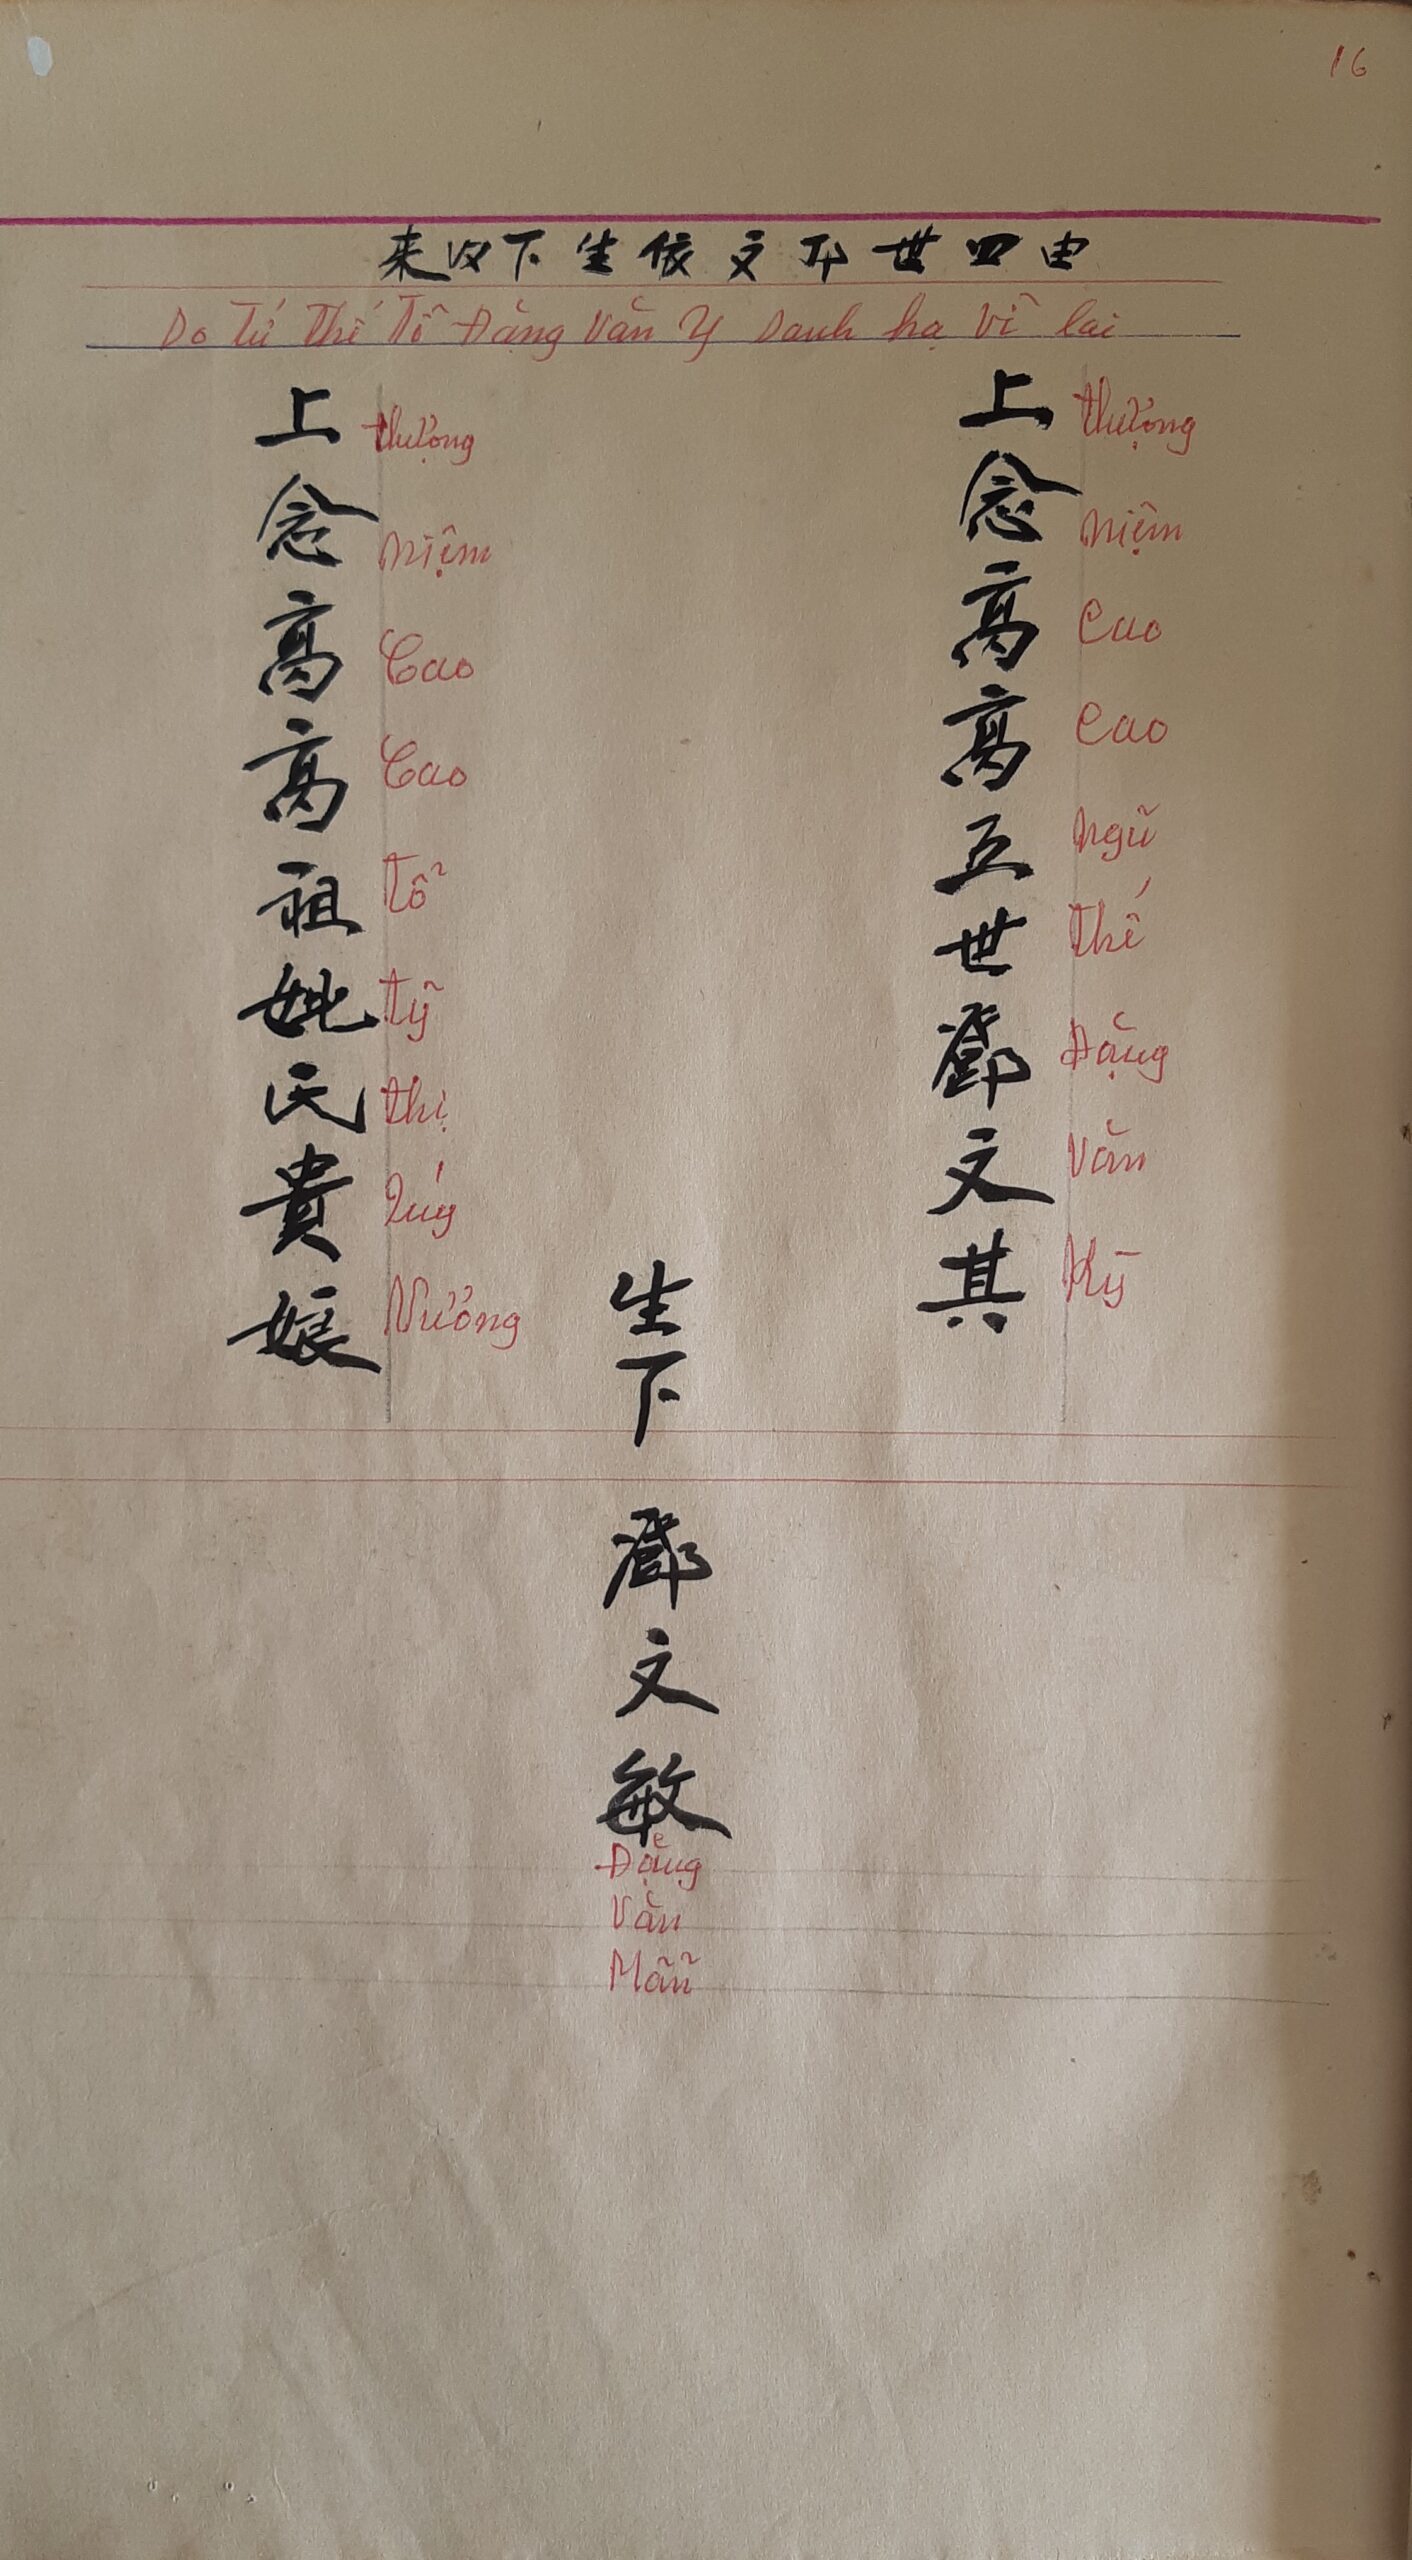 16
由四世卩文依生下以来
Do Tứ Thế Tổ Đặng Văn Y Danh hạ Vì lai
上念高高五世鄧文其
thượng
niệm
Cao
Cao
ngũ
thế
Đặng
Văn
Kỳ
生下
上念高高祖妣氏貴娘
thượng
niệm
Cao
Cao
tổ
tỹ
thị
Quý
Nương
鄧文敏
Đặng
Văn
Mẫn